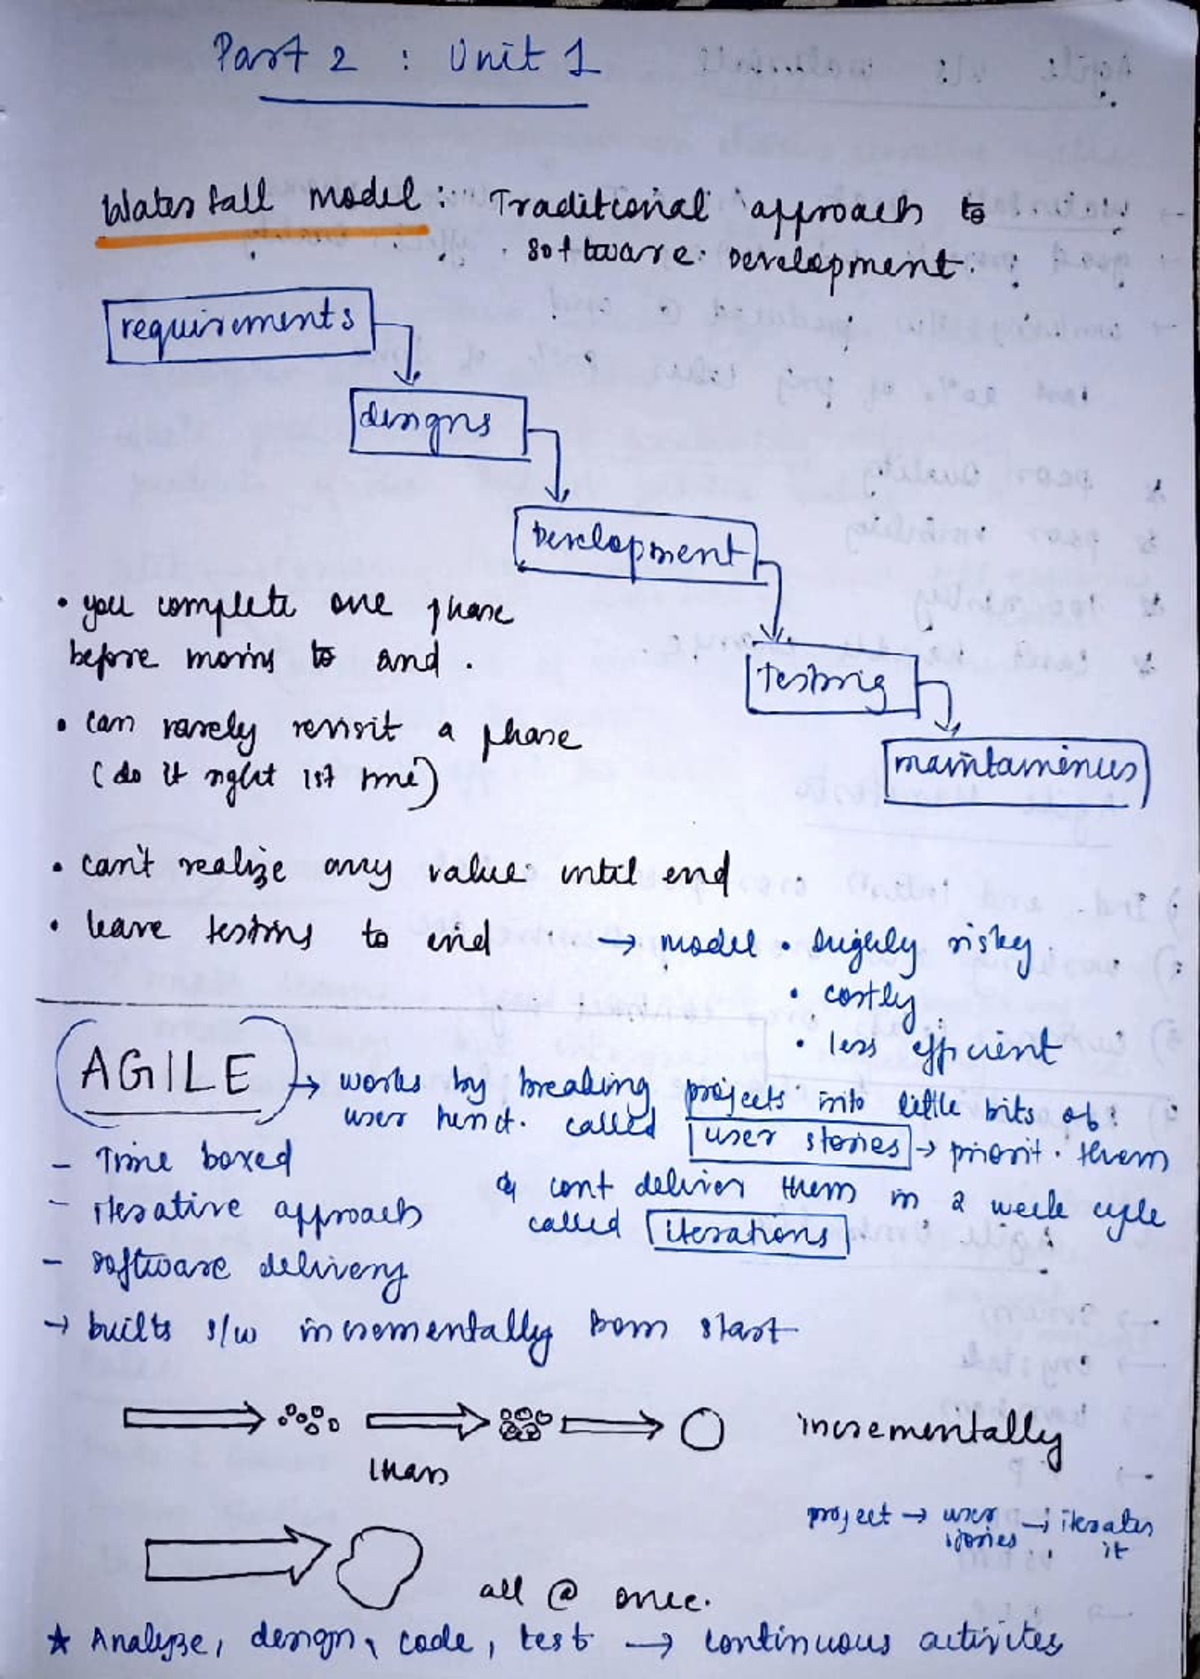 Part 2 : Unit 1
Waterfall model : Traditional approach to
software Development.
requirements
designs
Development
• you complete one phase
before moving to and.
testing
• can rarely revisit a phase
(do it right 1st time)
maintainences
• can't realize any value until end
• leave testing to end → model • highly risky
• costly
• less efficient
AGILE → works by breaking projects into little bits of
user funct. called user stories → priorit. them
- Time boxed
& cont deliver them in 2 week cycle
- iterative approach
called iterations
- software delivery
→ builts s/w incrementally from start
incrementally
project → user stories → iterates it
all @ once.
★ Analyze, design, code, test → continuous activites